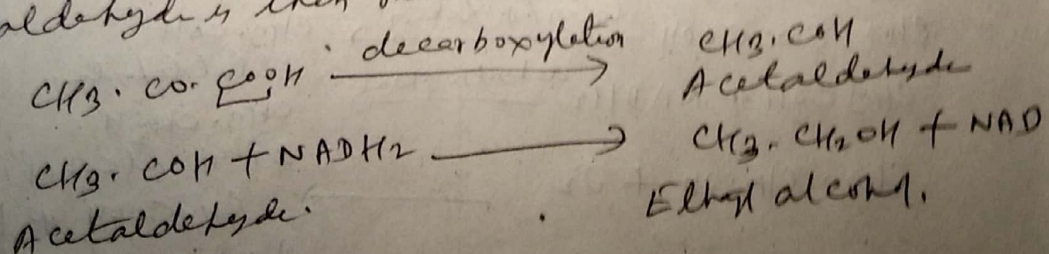 aldehyde is then
decarboxylation
CH3. CO. COOH → CH3. COH
Acetaldehyde
CH3. COH + NADH2 → CH3. CH2OH + NAD
Acetaldehyde. Ethyl alcohol.